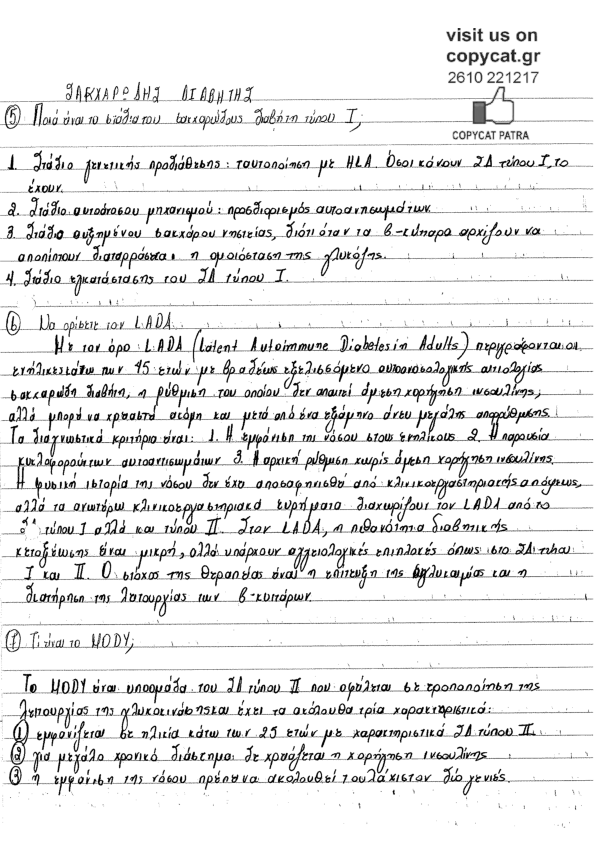 visit us on
copycat.gr
2610 221217
COPYCAT PATRA
ΣΑΚΧΑΡΩΔΗΣ ΔΙΑΒΗΤΗΣ
⑤ Ποιά είναι τα στάδια του σακχαρώδους διαβήτη τύπου Ι;
1. Στάδιο γενετικής προδιάθεσης: ταυτοποίηση με HLA. Όσοι κάνουν ΣΔ τύπου Ι, το
έχουν.
2. Στάδιο αυτοάνοσου μηχανισμού: προσδιορισμός αυτοαντισωμάτων
3. Στάδιο αυξημένου σακχάρου νηστείας, διότι όταν τα β-κύτταρα αρχίζουν να
αποπίπτουν διαταρράσεται η ομοιόσταση της γλυκόζης.
4. Στάδιο εγκατάστασης του ΣΔ τύπου Ι.
⑥ Να ορίσετε τον LADA.
Με τον όρο LADA (Latent Autoimmune Diabetes in Adults) περιγράφονται οι
ενήλικες άνω των 45 ετών με βραδέως εξελισσόμενο αυτοανοσολογικής αιτιολογίας
σακχαρώδη διαβήτη, η ρύθμιση του οποίου δεν απαιτεί άμεση χορήγηση ινσουλίνης,
αλλά μπορεί να χρειαστεί ακόμη και μετά από ένα εξάμηνο άνευ μεγάλης απορρύθμισης.
Τα διαγνωστικά κριτήρια είναι: 1. Η εμφάνιση της νόσου στους ενηλίκους 2. Η παρουσία
κυκλοφορούντων αυτοαντισωμάτων 3. Η αρχική ρύθμιση χωρίς άμεση χορήγηση ινσουλίνης.
Η φυσική ιστορία της νόσου δεν έχει αποσαφηνισθεί από κλινικοεργαστηριακής απόψεως,
αλλά τα ανωτέρω κλινικοεργαστηριακά ευρήματα διαχωρίζουν τον LADA από το
τύπου Ι αλλά και τύπου ΙΙ. Στον LADA, η πιθανότητα διαβητικής
κετοξέωσης είναι μικρή, αλλά υπάρχουν αγγειολογικές επιπλοκές όπως στο ΣΔ τύπου
Ι και ΙΙ. Ο στόχος της θεραπείας είναι η επίτευξη της ευγλυκαιμίας και η
διατήρηση της λειτουργίας των β-κυττάρων.
⑦ Τι είναι το MODY;
Το MODY είναι υποομάδα του ΣΔ τύπου ΙΙ που οφείλεται σε τροποποίηση της
λειτουργίας της γλυκοκινάσης και έχει τα ακόλουθα τρία χαρακτηριστικά:
① εμφανίζεται σε ηλικία κάτω των 25 ετών με χαρακτηριστικά ΣΔ τύπου ΙΙ.
② για μεγάλο χρονικό διάστημα δε χρειάζεται η χορήγηση ινσουλίνης
③ η εμφάνιση της νόσου πρέπει να ακολουθεί τουλάχιστον δύο γενιές.